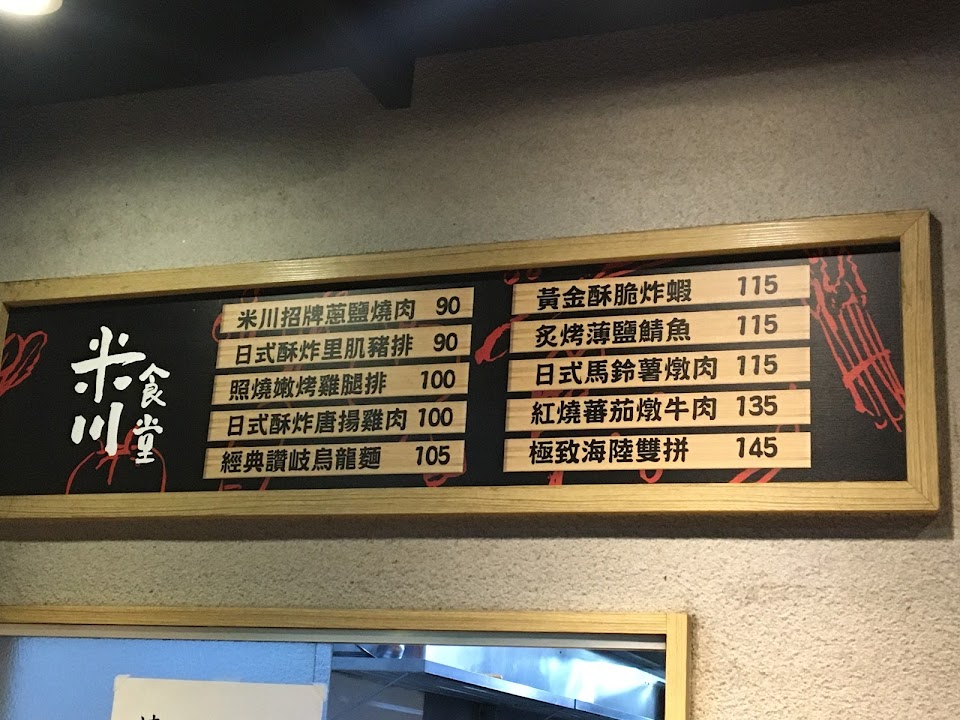 米川
食堂
米川招牌蔥鹽燒肉 90
日式酥炸里肌豬排 90
照燒嫩烤雞腿排 100
日式酥炸唐揚雞肉 100
經典讚岐烏龍麵 105
黃金酥脆炸蝦 115
炙烤薄鹽鯖魚 115
日式馬鈴薯燉肉 115
紅燒蕃茄燉牛肉 135
極致海陸雙拼 145